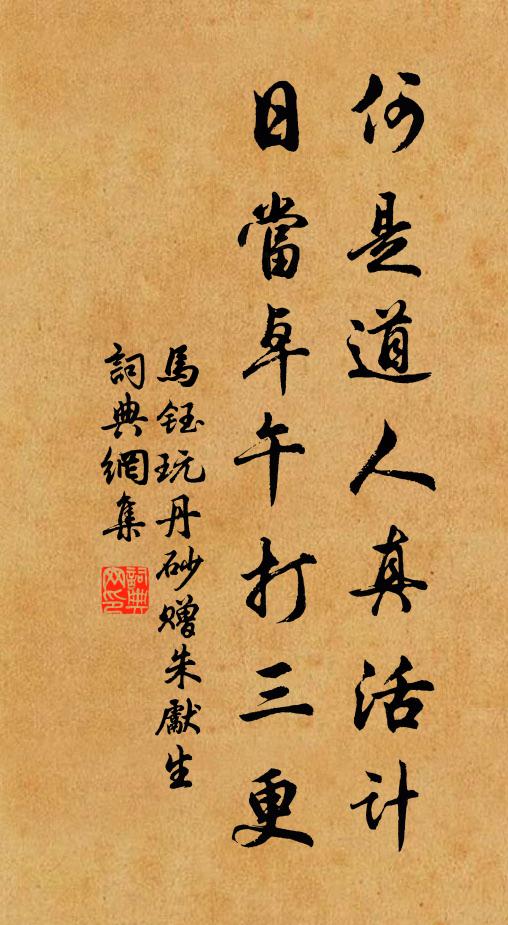 何是道人真活計
日當卓午打三更
馬鈺玩丹砂贈朱獻生
詞典網集
詞典网印